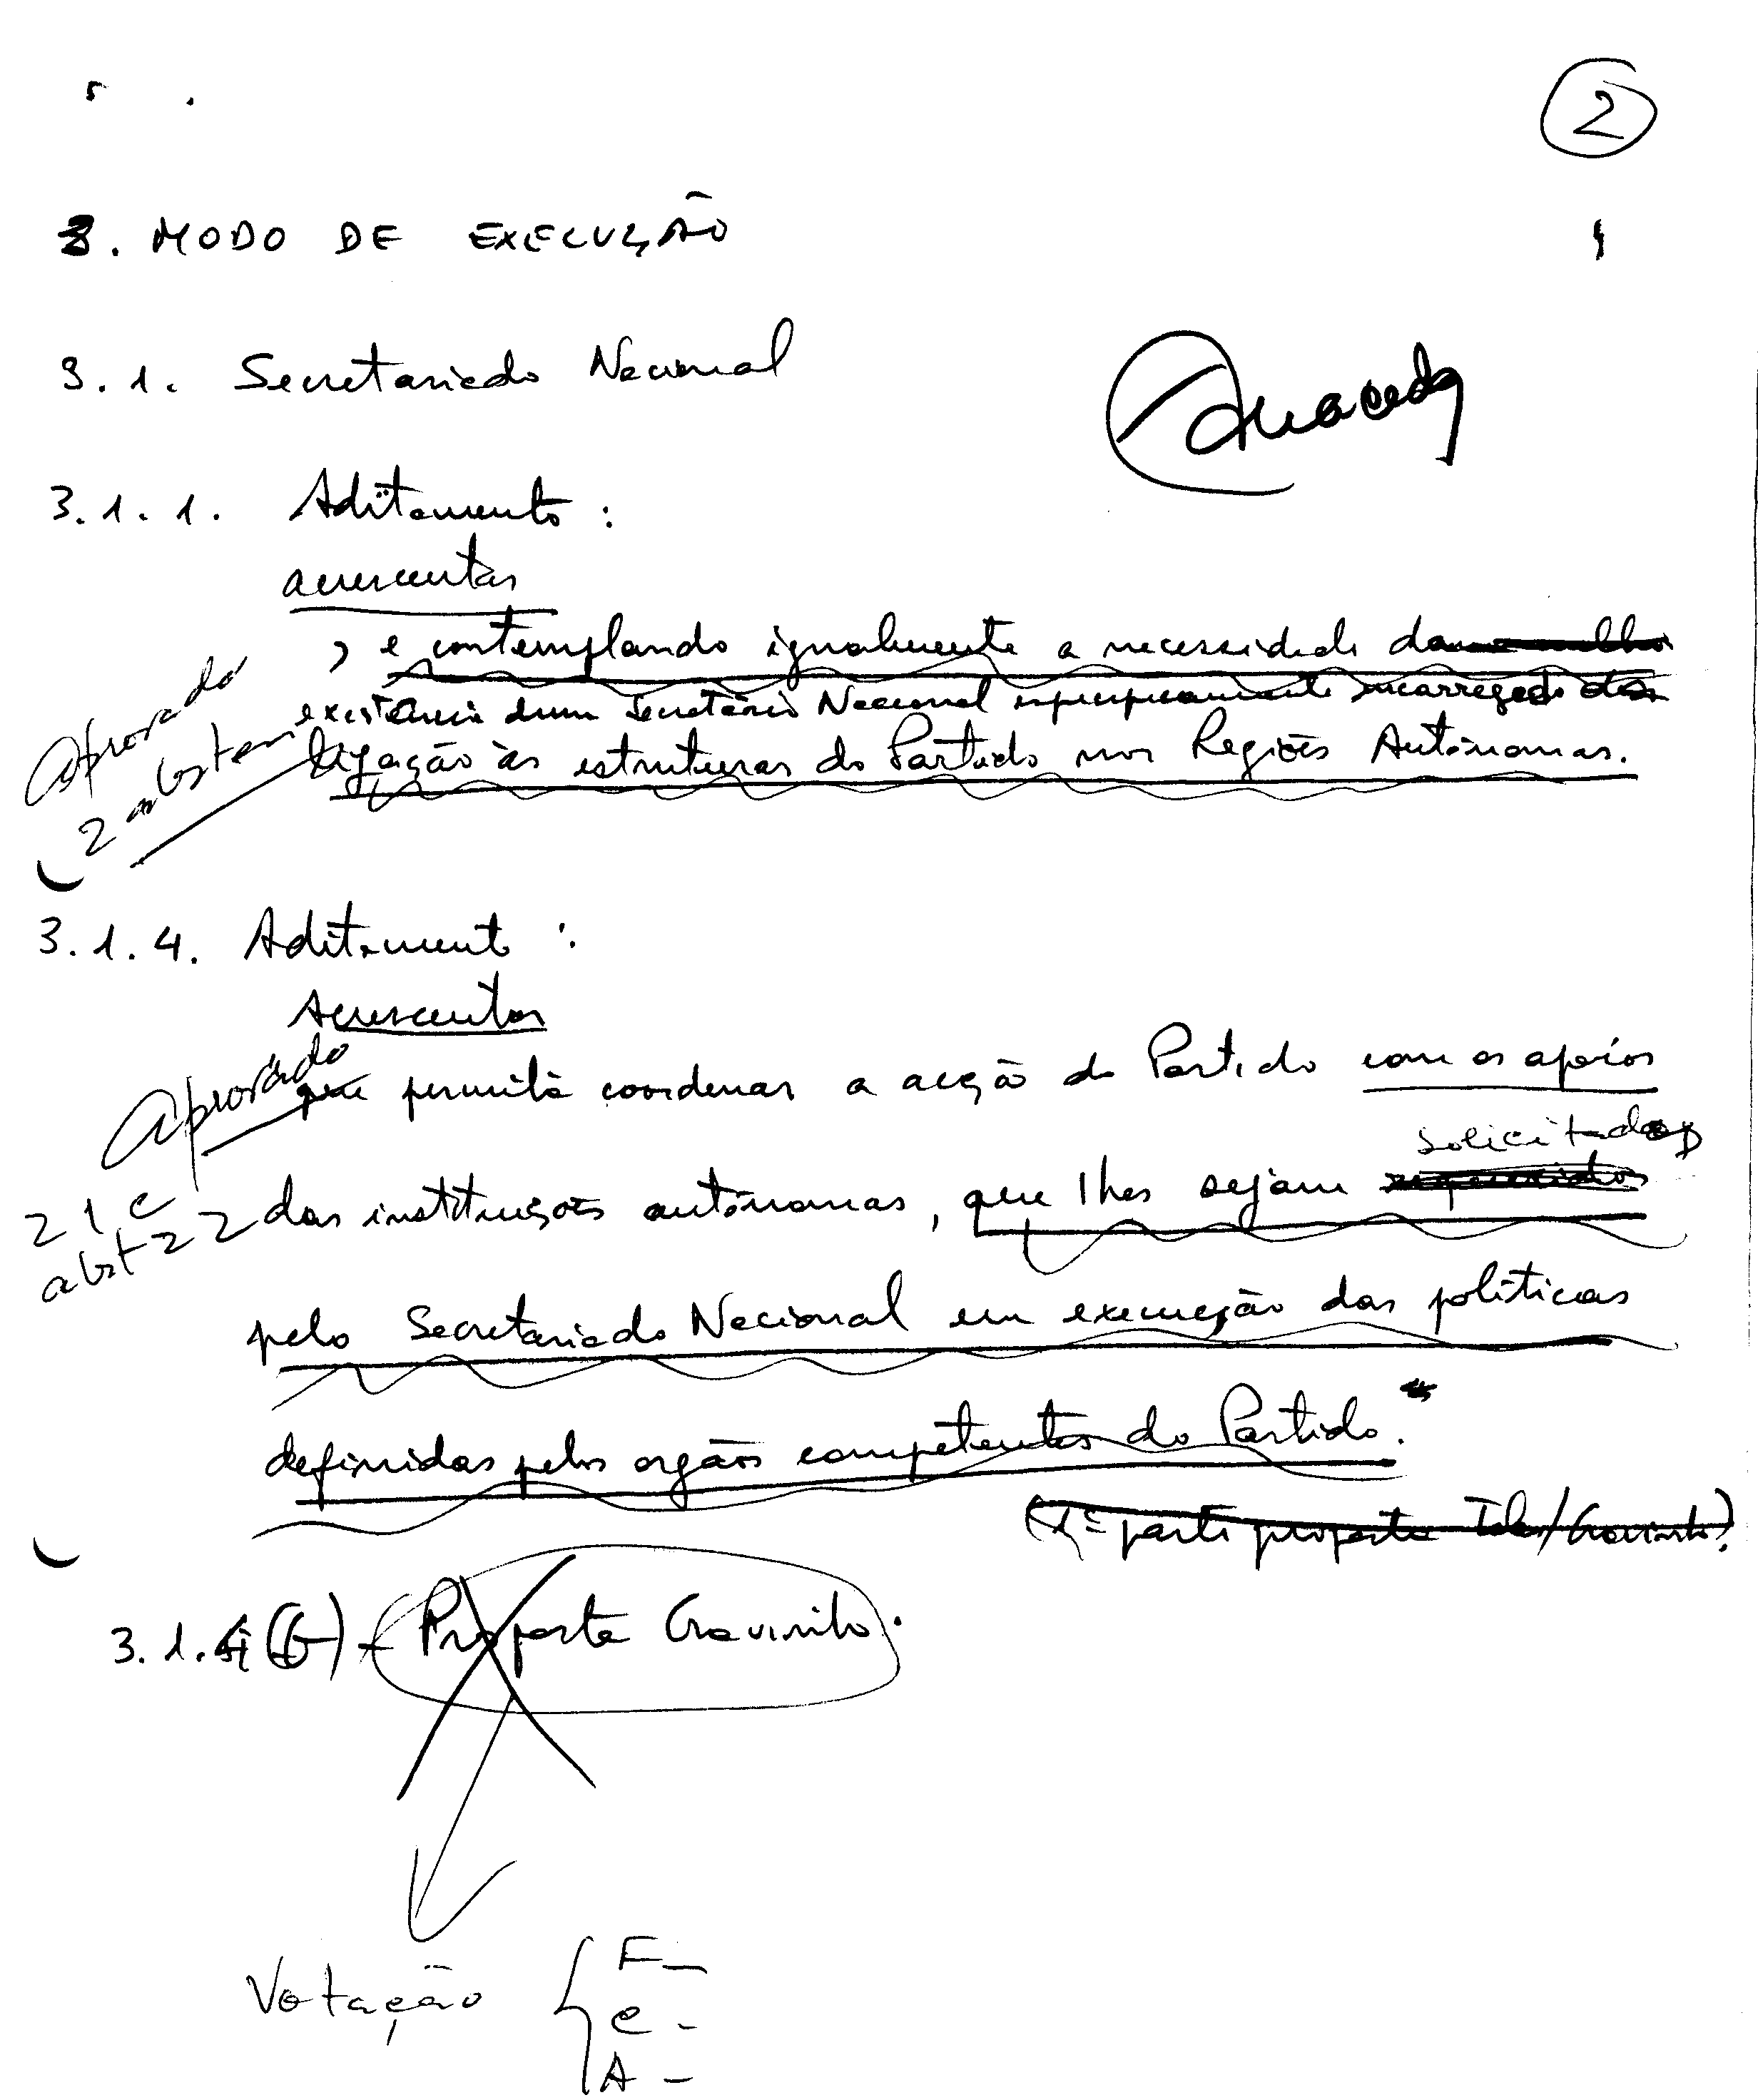 2
3. MODO DE EXECUÇÃO
3.1. Secretariado Nacional
3.1.1. Aditamento :
acrescentar
, e contemplando igualmente a necessidade da
existência dum Secretário Nacional especificamente encarregado da
ligação às estruturas do Partido nas Regiões Autónomas.
Aprovado
2 absten
3.1.4. Aditamento :
Acrescentar
Aprovado
que permita coordenar a acção do Partido com os apoios
solicitados
das instituições autónomas, que lhes sejam
21 c
abst 22
pelo Secretariado Nacional em execução das políticas
definidas pelos orgãos competentes do Partido.*
(1ª parte proposta /Gravinho)
3.1. - Proposta Gravinho.
Votação { F -
C -
A -